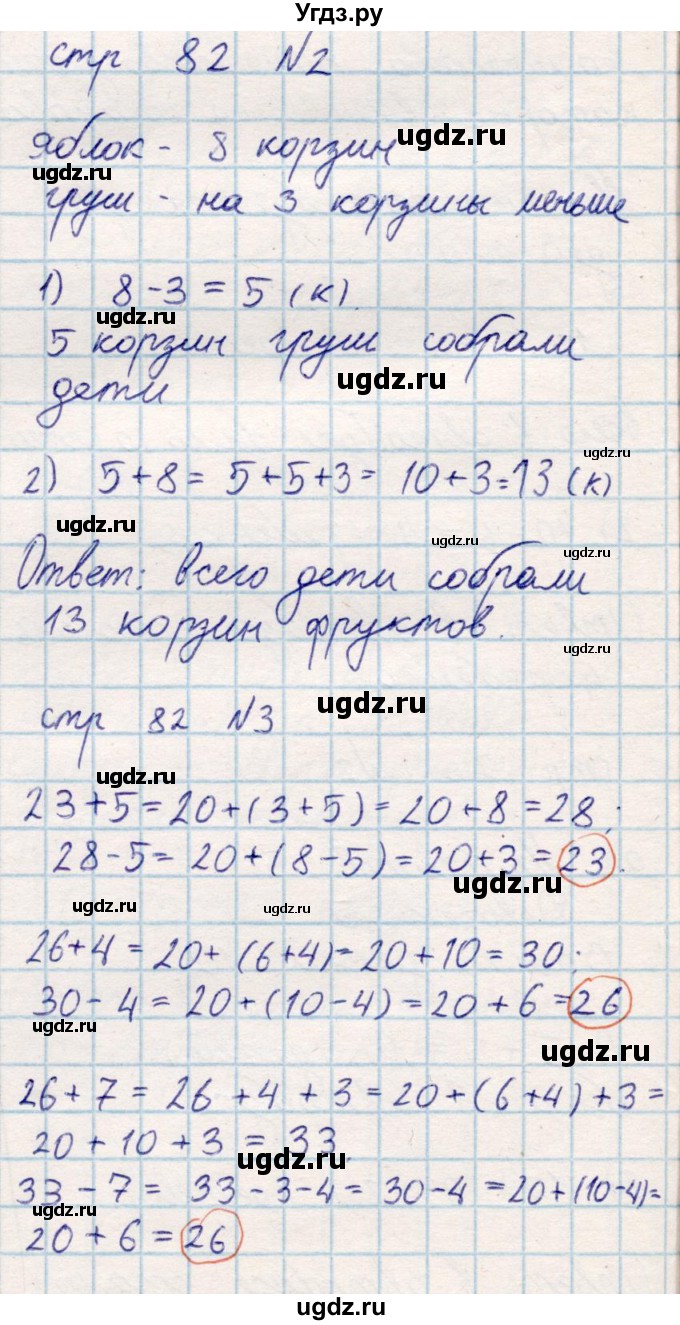 Угдз.ру
стр 82 №2
яблок - 8 корзин
ugdz.ru
ugdz.ru
груш - на 3 корзины меньше
1) 8-3 = 5 (к).
ugdz.ru
5 корзин груш собрали
ugdz.ru
дети
ugdz.ru
2) 5+8 = 5+5+3 = 10+3=13 (к)
ugdz.ru
ugdz.ru
ugdz.ru
Ответ: всего дети собрали
13 корзин фруктов.
ugdz.ru
ugdz.ru
стр 82 №3
ugdz.ru
23+5=20+(3+5)=20+8=28;
28-5= 20+(8-5)=20+3=23.
ugdz.ru
ugdz.ru
ugdz.ru
26+4=20+(6+4)=20+10=30;
30-4=20+(10-4)=20+6=26
ugdz.ru
ugdz.ru
26+7= 26+4+3=20+(6+4)+3=
20+10+3=33.
ugdz.ru
33-7= 33-3-4=30-4=20+(10-4)=
ugdz.ru
20+6=26
ugdz.ru